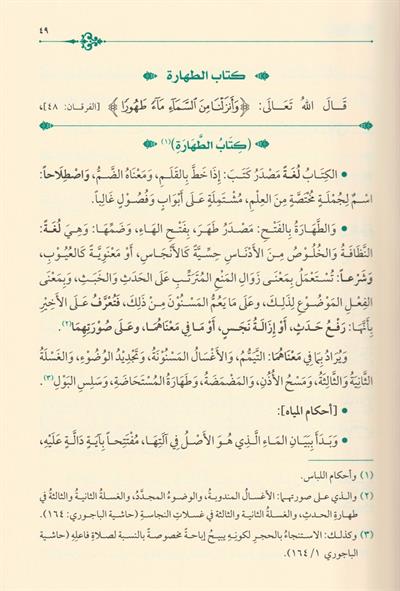 ٤٩
كتاب الطهارة
قَالَ اللهُ تَعَالَى: ﴿وَأَنزَلْنَا مِنَ ٱلسَّمَآءِ مَآءً طَهُورًا﴾ [الفرقان: ٤٨]،
(كِتَابُ الطَّهَارَةِ)(١)
• الكِتَابُ لُغَةً مَصْدَرُ كَتَبَ: إِذَا خَطَّ بِالقَلَمِ، وَمَعْنَاهُ الضَّمُّ، وَاصْطِلَاحاً:
اسْمٌ لِجُمْلَةٍ مُخْتَصَّةٍ مِنَ العِلْمِ، مُشْتَمِلَةٍ عَلَى أَبْوَابٍ وَفُصُولٍ غَالِباً.
• وَالطَّهَارَةُ بِالفَتْحِ: مَصْدَرُ طَهَرَ، بِفَتْحِ الهَاءِ، وَضَمِّهَا: وَهِيَ لُغَةً:
النَّظَافَةُ وَالخُلُوصُ مِنَ الأَدْنَاسِ حِسِّيَّةً كَالأَنْجَاسِ، أَوْ مَعْنَوِيَّةً كَالعُيُوبِ،
وَشَرْعاً: تُسْتَعْمَلُ بِمَعْنَى زَوَالِ المَنْعِ المُتَرَتِّبِ عَلَى الحَدَثِ وَالخَبَثِ، وَبِمَعْنَى
الفِعْلِ المَوْضُوعِ لِذَلِكَ، وَعَلَى مَا يَعُمُّ المَسْنُونَ مِنْ ذَلِكَ، فَتُعَرَّفُ عَلَى الأَخِيْرِ
بِأَنَّهَا: رَفْعُ حَدَثٍ، أَوْ إِزَالَةُ نَجَسٍ، أَوْ مَا فِي مَعْنَاهُمَا، وَعَلَى صُوْرَتِهِمَا.(٢)
وَيُرَادُ بِمَا فِي مَعْنَاهُمَا: التَّيَمُّمُ، وَالأَغْسَالُ المَسْنُوْنَةُ، وَتَجْدِيْدُ الوُضُوْءِ، وَالغَسْلَةُ
الثَّانِيَةُ وَالثَّالِثَةُ، وَمَسْحُ الأُذُنِ، وَالمَضْمَضَةُ، وَطَهَارَةُ المُسْتَحَاضَةِ، وَسَلِسِ البَوْلِ.(٣)
• [أحكام المياه]:
• وَبَدَأَ بِبَيَانِ المَاءِ الَّذِي هُوَ الأَصْلُ فِي آلَتِهَا، مُفْتَتِحاً بِآيَةٍ دَالَّةٍ عَلَيْهِ،
(١) وأحكام اللباس.
(٢) والذي على صورتهما: الأغسال المندوبة، والوضوء المجدَّد، والغسلة الثانية والثالثة في
طهارة الحدث، والغسلة الثانية والثالثة في غسلات النجاسة (حاشية الباجوري: ١٦٤).
(٣) وكذلك: الاستنجاء بالحجر لكونه يبيحُ إباحة مخصوصة بالنسبة لصلاة فاعله (حاشية
الباجوري ١/ ١٦٤)